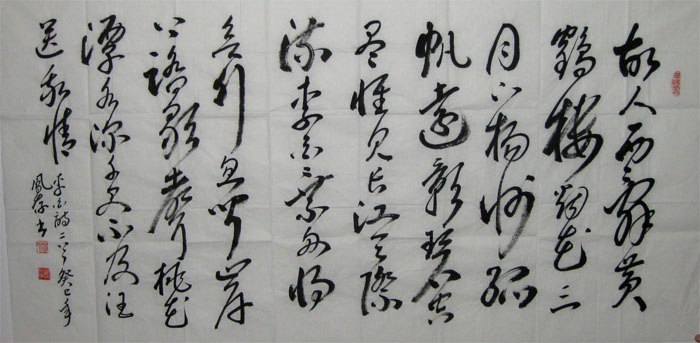 故人西辞黄
鹤楼烟花三
月下扬州孤
帆遠影碧空
尽惟见长江天際
流李白乘舟将
欲行忽闻岸
上踏歌聲桃花
潭水深千尺不及汪
送我情
李白詩二首癸巳年
凤存书